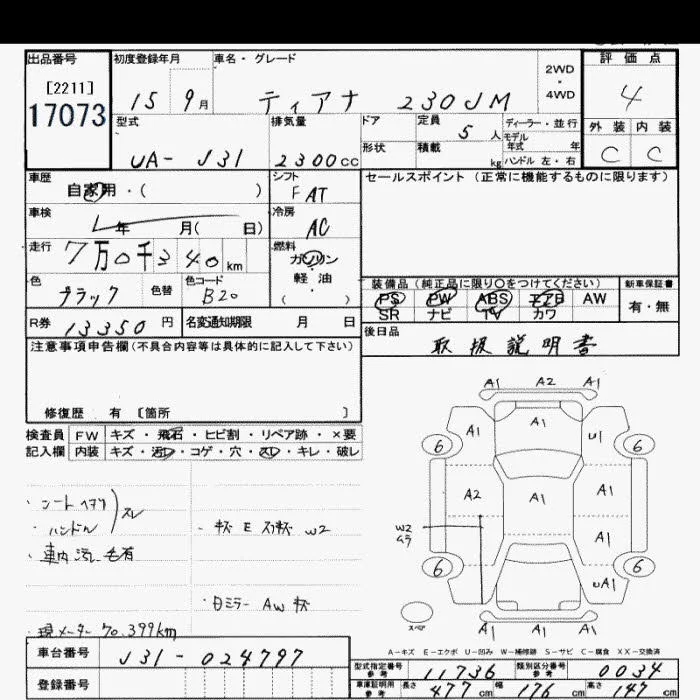 出品番号 初度登録年月 車名・グレード 2WD・4WD 評価点
[2211]
17073
15 9月 ティアナ 230JM 4
型式 排気量 ドア 定員 5人 ディーラー・並行 外装 内装
モデル年式 年
UA- J31 2300cc 形状 積載 kg ハンドル 左・右 C C
車歴 シフト セールスポイント (正常に機能するものに限ります)
自家用・( ) FAT
車検 冷房
年 月( 日) AC
走行 燃料
7万0千340km ガソリン
軽・油
( )
色 色替 色コード 装備品 (純正品に限り○をつけてください) 新車保証書
ブラック B20 PS PW ABS エアB AW 有・無
SR ナビ TV カワ
R券 13350円 名変通知期限 月 日 後日品
取扱説明書
注意事項申告欄(不具合内容等は具体的に記入して下さい)
修復歴 有 [箇所 ]
検査員 FW キズ・飛石・ヒビ割・リペア跡・×要
記入欄 内装 キズ・汚レ・コゲ・穴・スレ・キレ・破レ
A1 A2 A1
A1 A1 U1
6 6
A2 A1 A1
W2
ムラ
A1
6 6
UA1
スペア
A1 A1 A1
・シートヘタリ
・ハンドル スレ
・車内汚レ 毛有
・現メーター 70.399km
・キズ E スリキズ W2
・日ミラー AW キズ
A-キズ E-エクボ U-凹み W-補修跡 S-サビ C-腐食 XX-交換済
車台番号 J31-024797
登録番号
型式指定番号 参考 11736 類別区分番号 参考 0034
車庫証明用 参考 長さ 477cm 幅 176cm 高さ 147cm